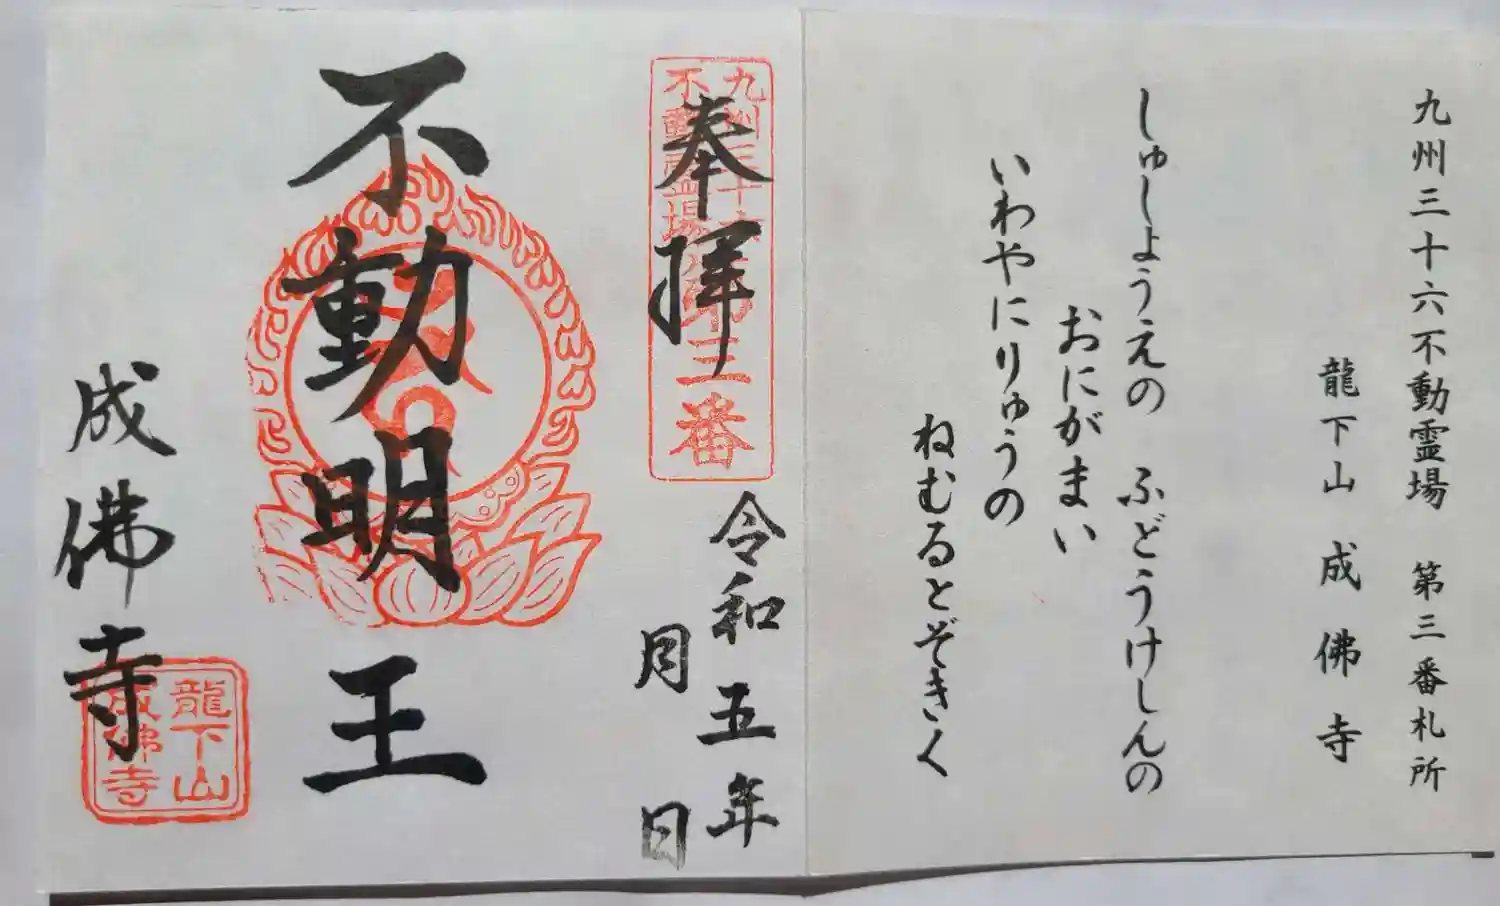 九州三十六不動霊場　第三番札所
龍下山　成佛寺
しゅしょうえの　ふどうけしんの
おにがまい
いわやにりゅうの
ねむるとぞきく
九州三十六
不動霊場第三番
奉拝
令和五年
月　日
不動明王
成佛寺
龍下山
成佛寺